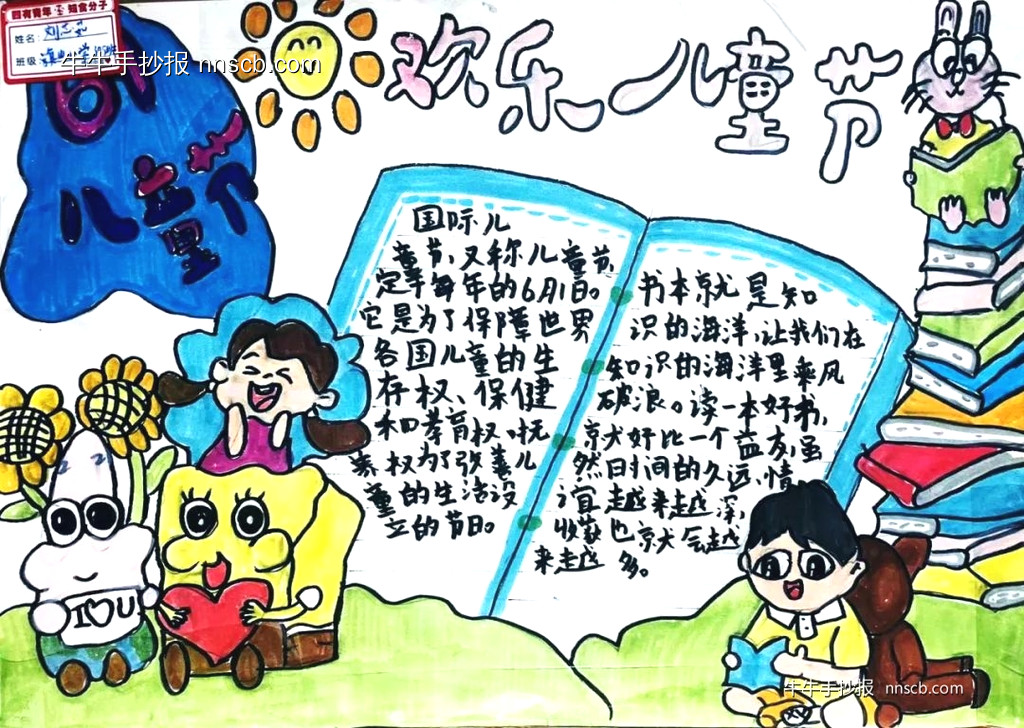 四有青年 知食分子
姓名:
班级
牛牛手抄报 nnscb.com
欢乐儿童节
儿童节
国际儿
童节,又称儿童节,
定于每年的6月1日。
它是为了保障世界
各国儿童的生
存权、保健
和孝育权、抚
养权为了改善儿
童的生活设
立的节日。
书本就是知
识的海洋,让我们在
知识的海洋里乘风
破浪。读一本好书,
就好比一个益友,虽
然日时间的久远,情
谊越来越深,
收获也就会越
来越多。
I♡U
牛牛手抄报 nnscb.com